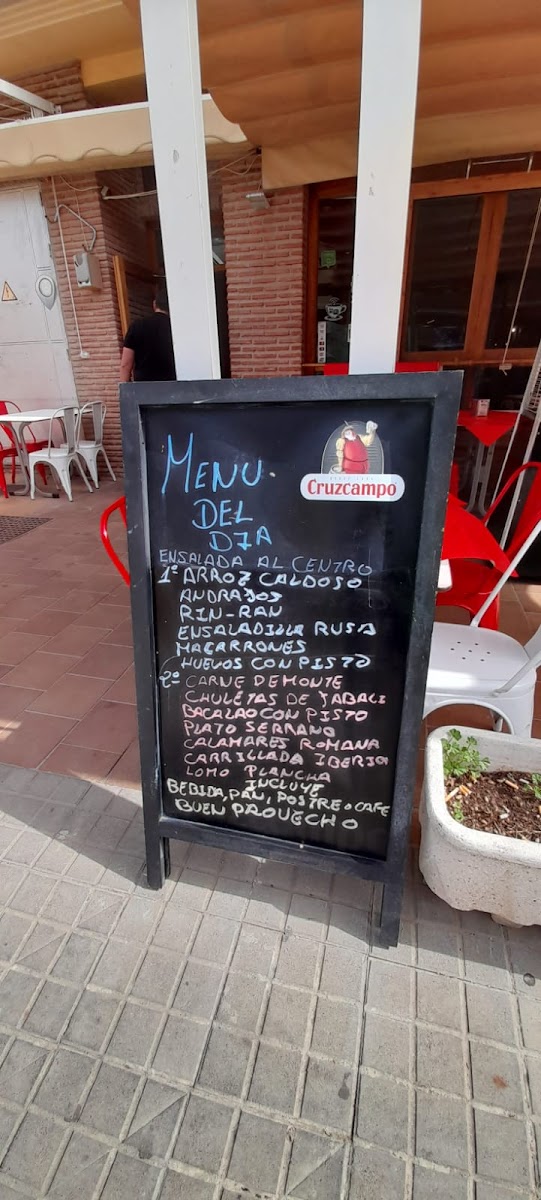 MENU
DEL
DIA
Cruzcampo
ENSALADA AL CENTRO
1º ARROZ CALDOSO
ANDRAJOS
RIN-RAN
ENSALADILLA RUSA
MACARRONES
HUEVOS CON PISTO
2º CARNE DE MONTE
CHULETAS DE JABALI
BACALAO CON PISTO
PLATO SERRANO
CALAMARES ROMANA
CARRILLADA IBERICA
LOMO PLANCHA
INCLUYE
BEBIDA, PAN, POSTRE O CAFE
BUEN PROVECHO